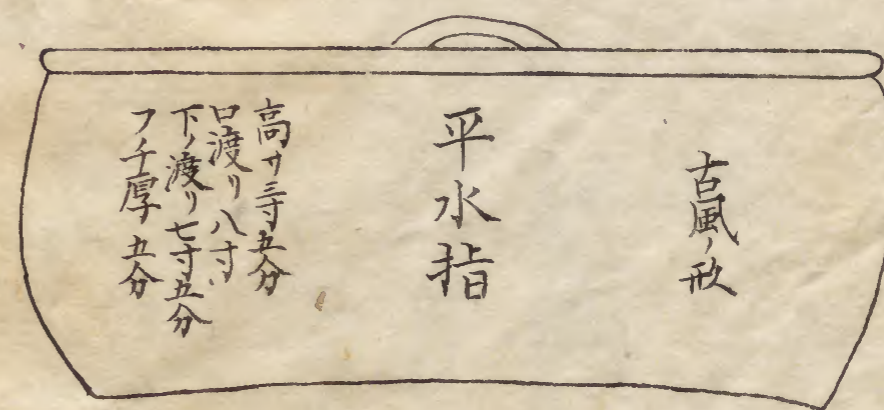 古風ノ形
平水指
高サ三寸五分
口渡リ八寸
下ノ渡リ七寸五分
フチ厚五分